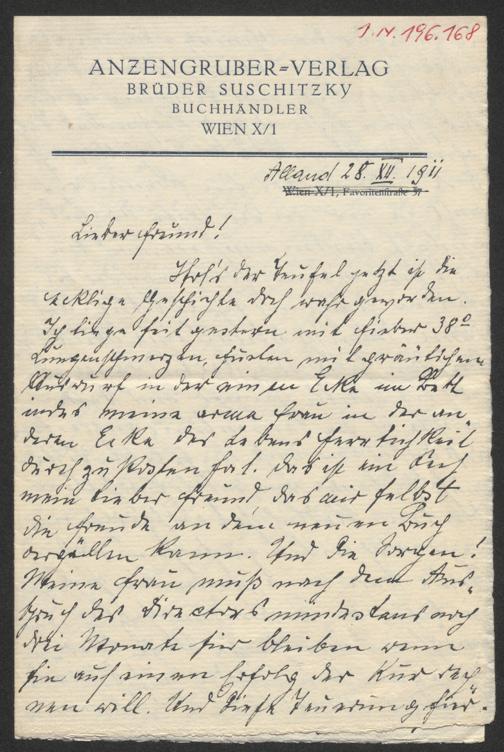 I.N. 196.168
ANZENGRUBER=VERLAG
BRÜDER SUSCHITZKY
BUCHHÄNDLER
WIEN X/1
Alland 28. XII. 1911
Wien X/1, Favoritenstraße 57
Lieber Freund!
Hol's der Teufel jetzt ist die
ecklige Geschichte doch wahr geworden.
Ich liege seit gestern mit Fieber 38°
Lungenschmerzen, Husten mit
Auswurf in der einen Ecke im Bett
indes meine arme Frau in der an
deren Ecke des Lebens Herrlichkeit
durch zu kosten hat. Das ist ein
mein lieber Freund das mir selbst
die Freude an dem neuen Buch
vergällen kann. Und die Sorgen!
Meine Frau muß nach dem Aus-
spruch des Directors mindestens noch
drei Monate hier bleiben wenn
sie auf einen Erfolg der Kur rech
nen will. Und diese Teuerung hier.